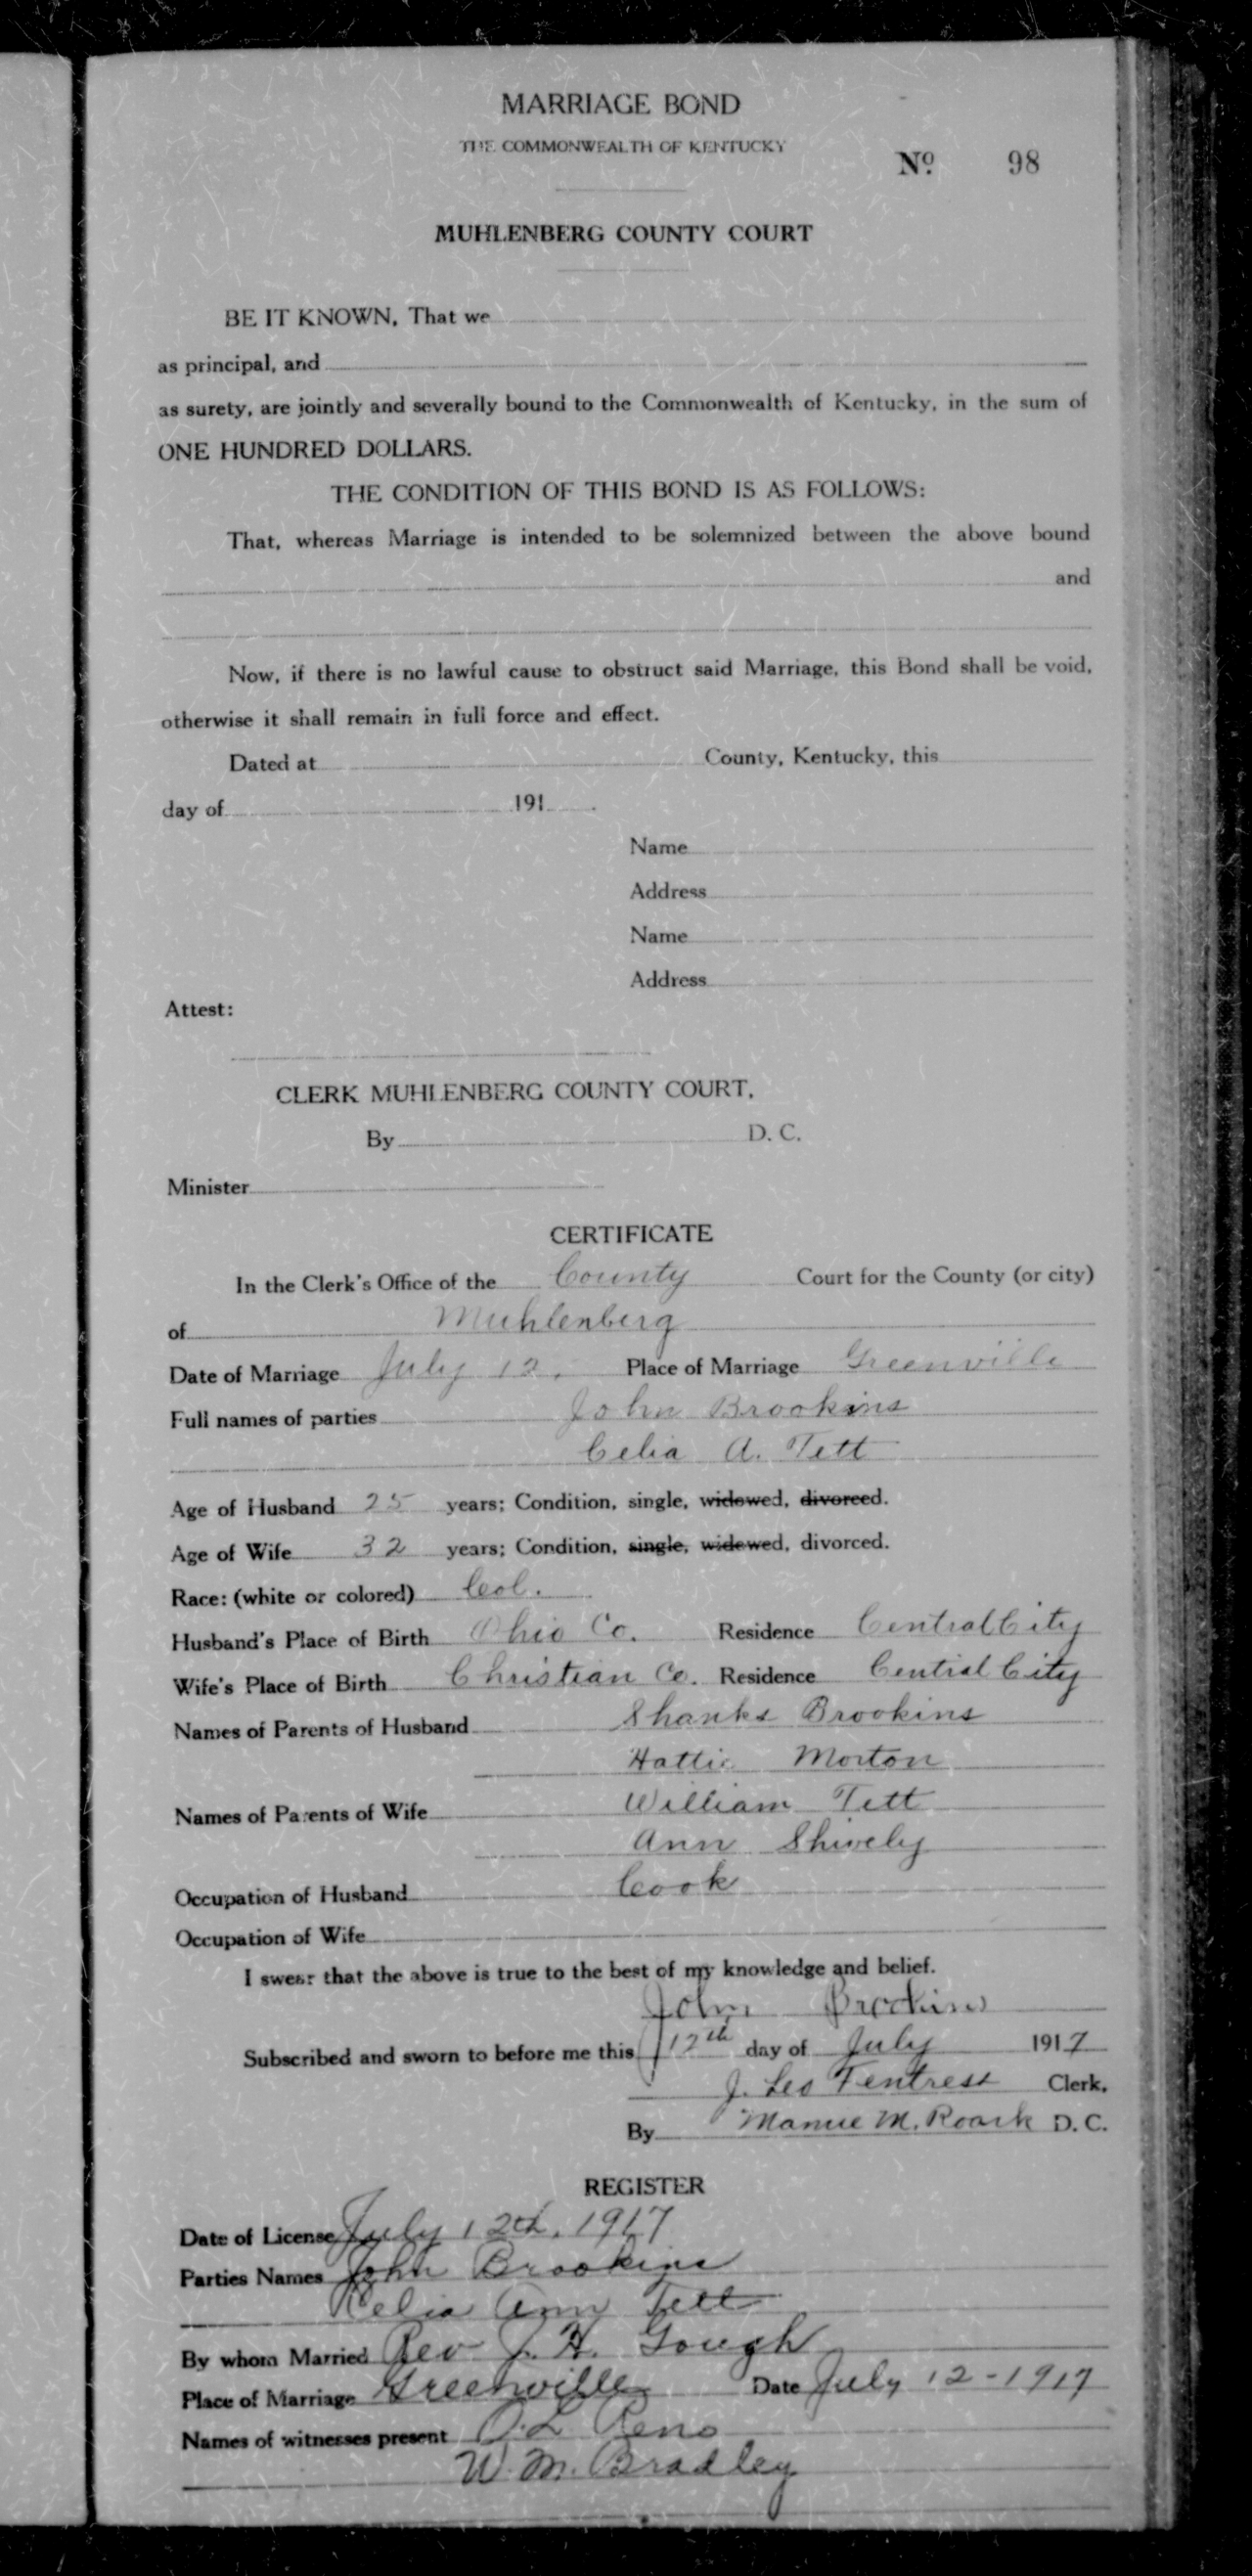 MARRIAGE BOND
THE COMMONWEALTH OF KENTUCKY
No. 98
MUHLENBERG COUNTY COURT
BE IT KNOWN, That we
as principal, and
as surety, are jointly and severally bound to the Commonwealth of Kentucky, in the sum of
ONE HUNDRED DOLLARS.
THE CONDITION OF THIS BOND IS AS FOLLOWS:
That, whereas Marriage is intended to be solemnized between the above bound
and
Now, if there is no lawful cause to obstruct said Marriage, this Bond shall be void,
otherwise it shall remain in full force and effect.
Dated at County, Kentucky, this
day of 191 .
Name
Address
Name
Address
Attest:
CLERK MUHLENBERG COUNTY COURT,
By D. C.
Minister
CERTIFICATE
In the Clerk's Office of the County Court for the County (or city)
of Muhlenberg
Date of Marriage July 12, Place of Marriage Greenville
Full names of parties John Brookins
Celia A. Tett
Age of Husband 25 years; Condition, single, widowed, divorced.
Age of Wife 32 years; Condition, single, widowed, divorced.
Race: (white or colored) Col.
Husband's Place of Birth Ohio Co. Residence Central City
Wife's Place of Birth Christian Co. Residence Central City
Names of Parents of Husband Shanks Brookins
Hattie Morton
Names of Parents of Wife William Tett
Ann Shively
Occupation of Husband Cook
Occupation of Wife
I swear that the above is true to the best of my knowledge and belief.
John Brookins
Subscribed and sworn to before me this 12th day of July 1917
J. Leo Fentress Clerk.
By Mamie M. Roark D. C.
REGISTER
Date of License July 12th, 1917
Parties Names John Brookins
Celia Ann Tett
By whom Married Rev J. H. Gough
Place of Marriage Greenville Date July 12-1917
Names of witnesses present O. L. Reno
W. M. Bradley